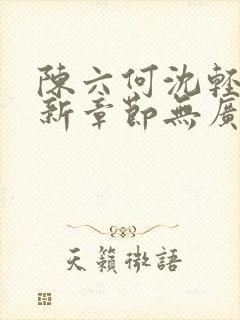 陳六何沈輕
新章節無廣
天籟微語